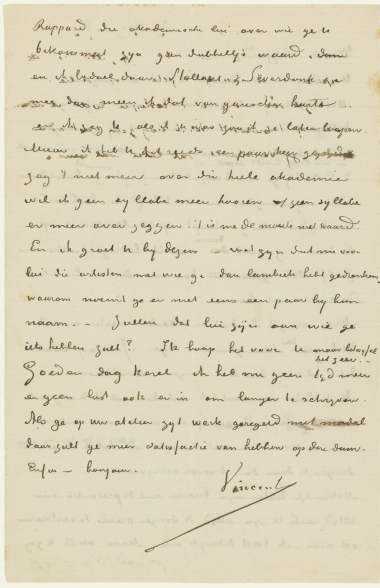 Rappard die akademische lui over wie ge te
bekommert zijn geen dubbeltje waard. dom
en ik bedoel daar Stallaert & Severdonk
mee dan meen ik dat van ganscher harte
en ik zeg U als ik U was zou ik ze laten loopen.
Maar ik heb U het reeds een paar keer gezegd
zeg 't niet meer over die heele akademie
wil ik geen syllabe meer hooren of geen syllabe
er meer over zeggen 't is me de moeite niet waard.
En ik groet U bij dezen – wat zijn dat nu voor
lui die artisten met wie ge dan lambiek hebt gedronken
waarom noemt ge er niet eens een paar bij hun
naam. – Zullen dat lui zijn aan wie ge
iets hebben zult? Ik hoop het voor U maar
het zeer. –
Goeden dag kerel ik heb nu geen tijd meer
en geen lust ook er in om langer te schrijven.
Als ge op uw atelier zijt werk geregeld met model
daar zult ge meer satisfactie van hebben op den duur.
Enfin – bonjour.
Vincent